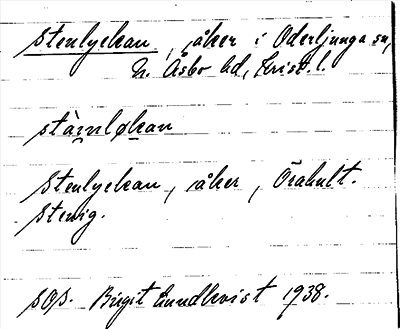 Stenlyckan, åker i Oderljunga sn,
N. Åsbo hd, Krist. l.
stàɪnløkan
Stenlyckan, åker, Örahult.
Stenig.
sop. Birgit Lundkvist 1938.